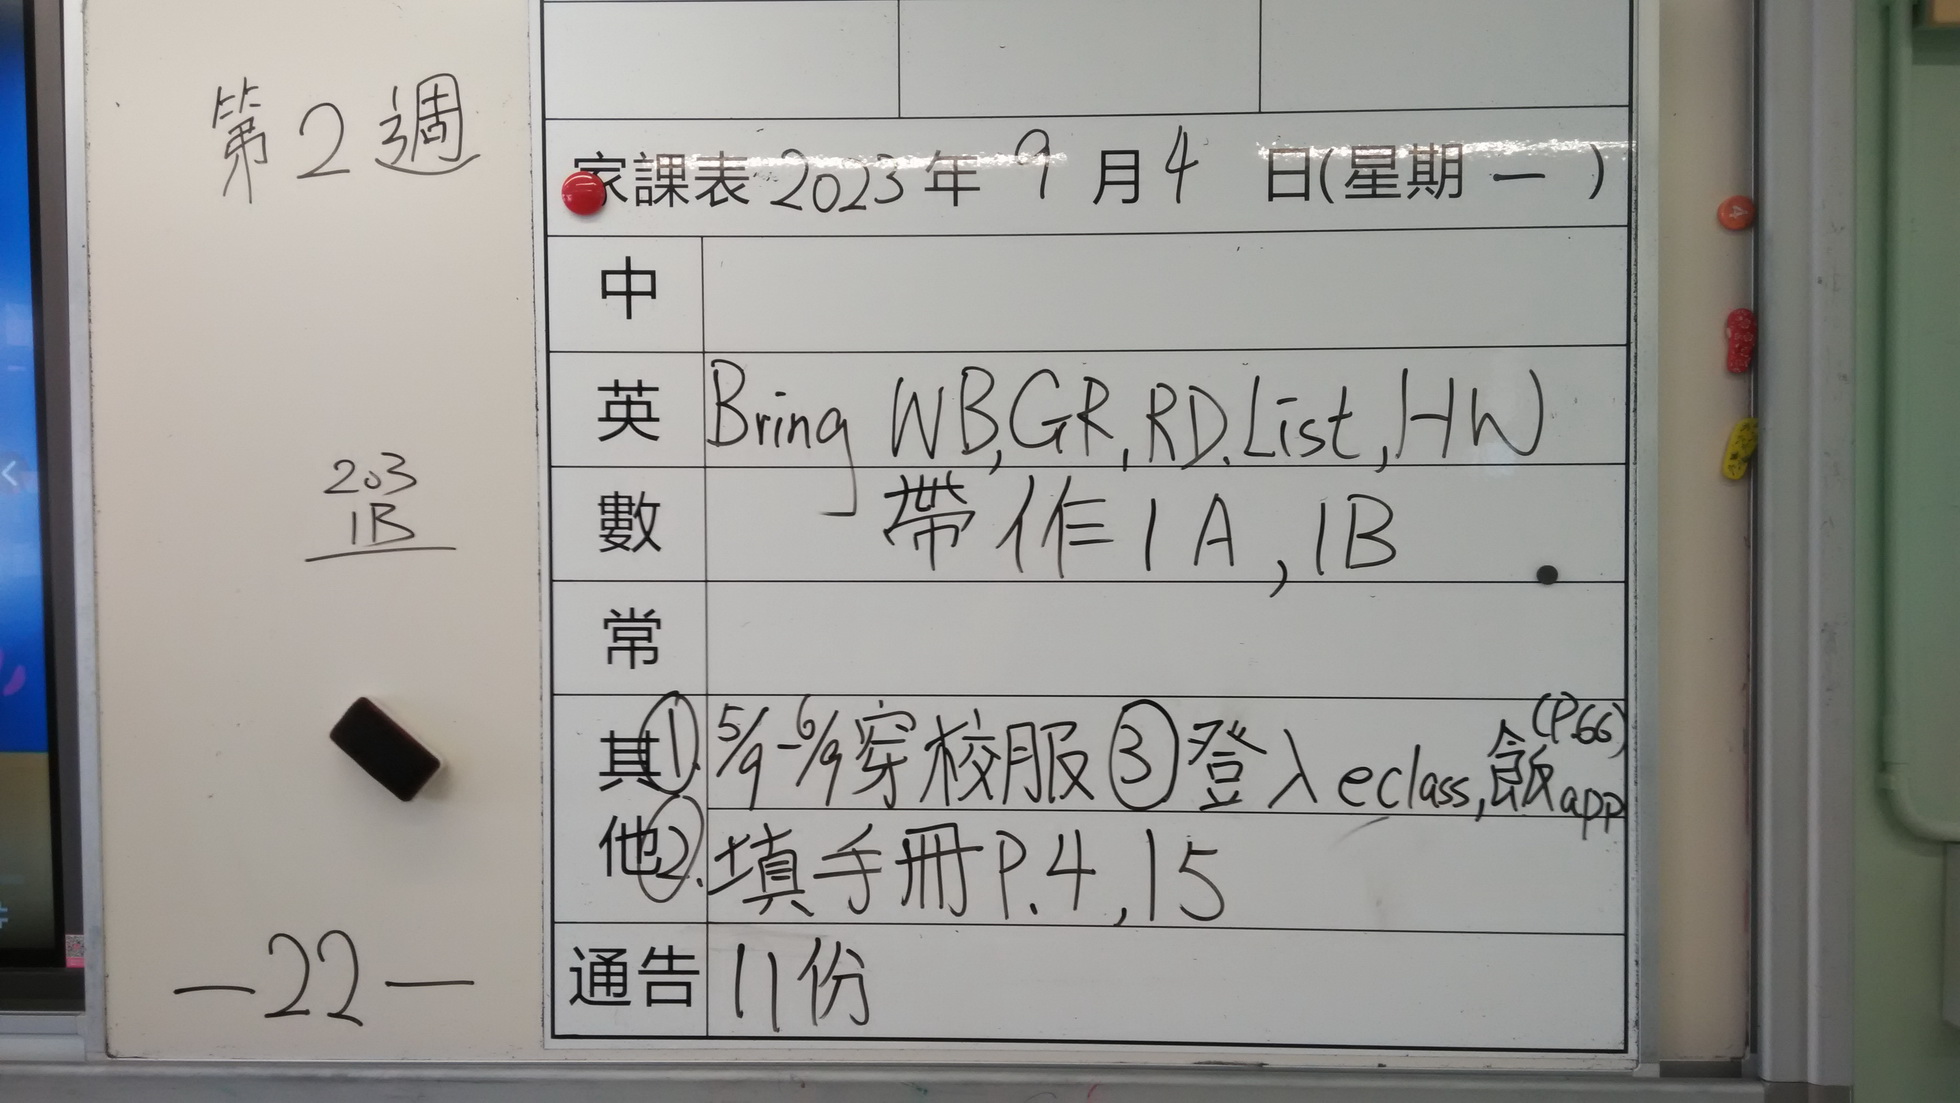 第2週
203
1B
—22—
家課表 2023年9月4日(星期一)
中
英 Bring WB,GR,RD.List,HW
數 帶作1A,1B
常
其他
①. 5/9-6/9穿校服 ③登入eclass,飯app (P.66)
②. 填手冊P.4,15
通告 11份